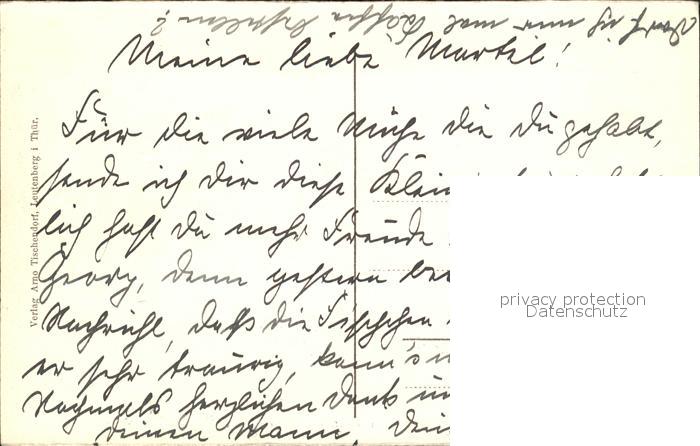 Darf ich mir mal Kaffee bestellen?
Meine liebe Martel!
Für die viele Mühe die du gehabt,
sende ich dir diese Klein
lich hast du mehr Freude
Georg, denn gestern be
Nachricht, daß die Fischchen
er sehr traurig, kann's n
Nochmals herzlichen Dank u
deinen Mann, dein
Verlag Arno Tischendorf, Leutenberg i Thür.
privacy protection
Datenschutz